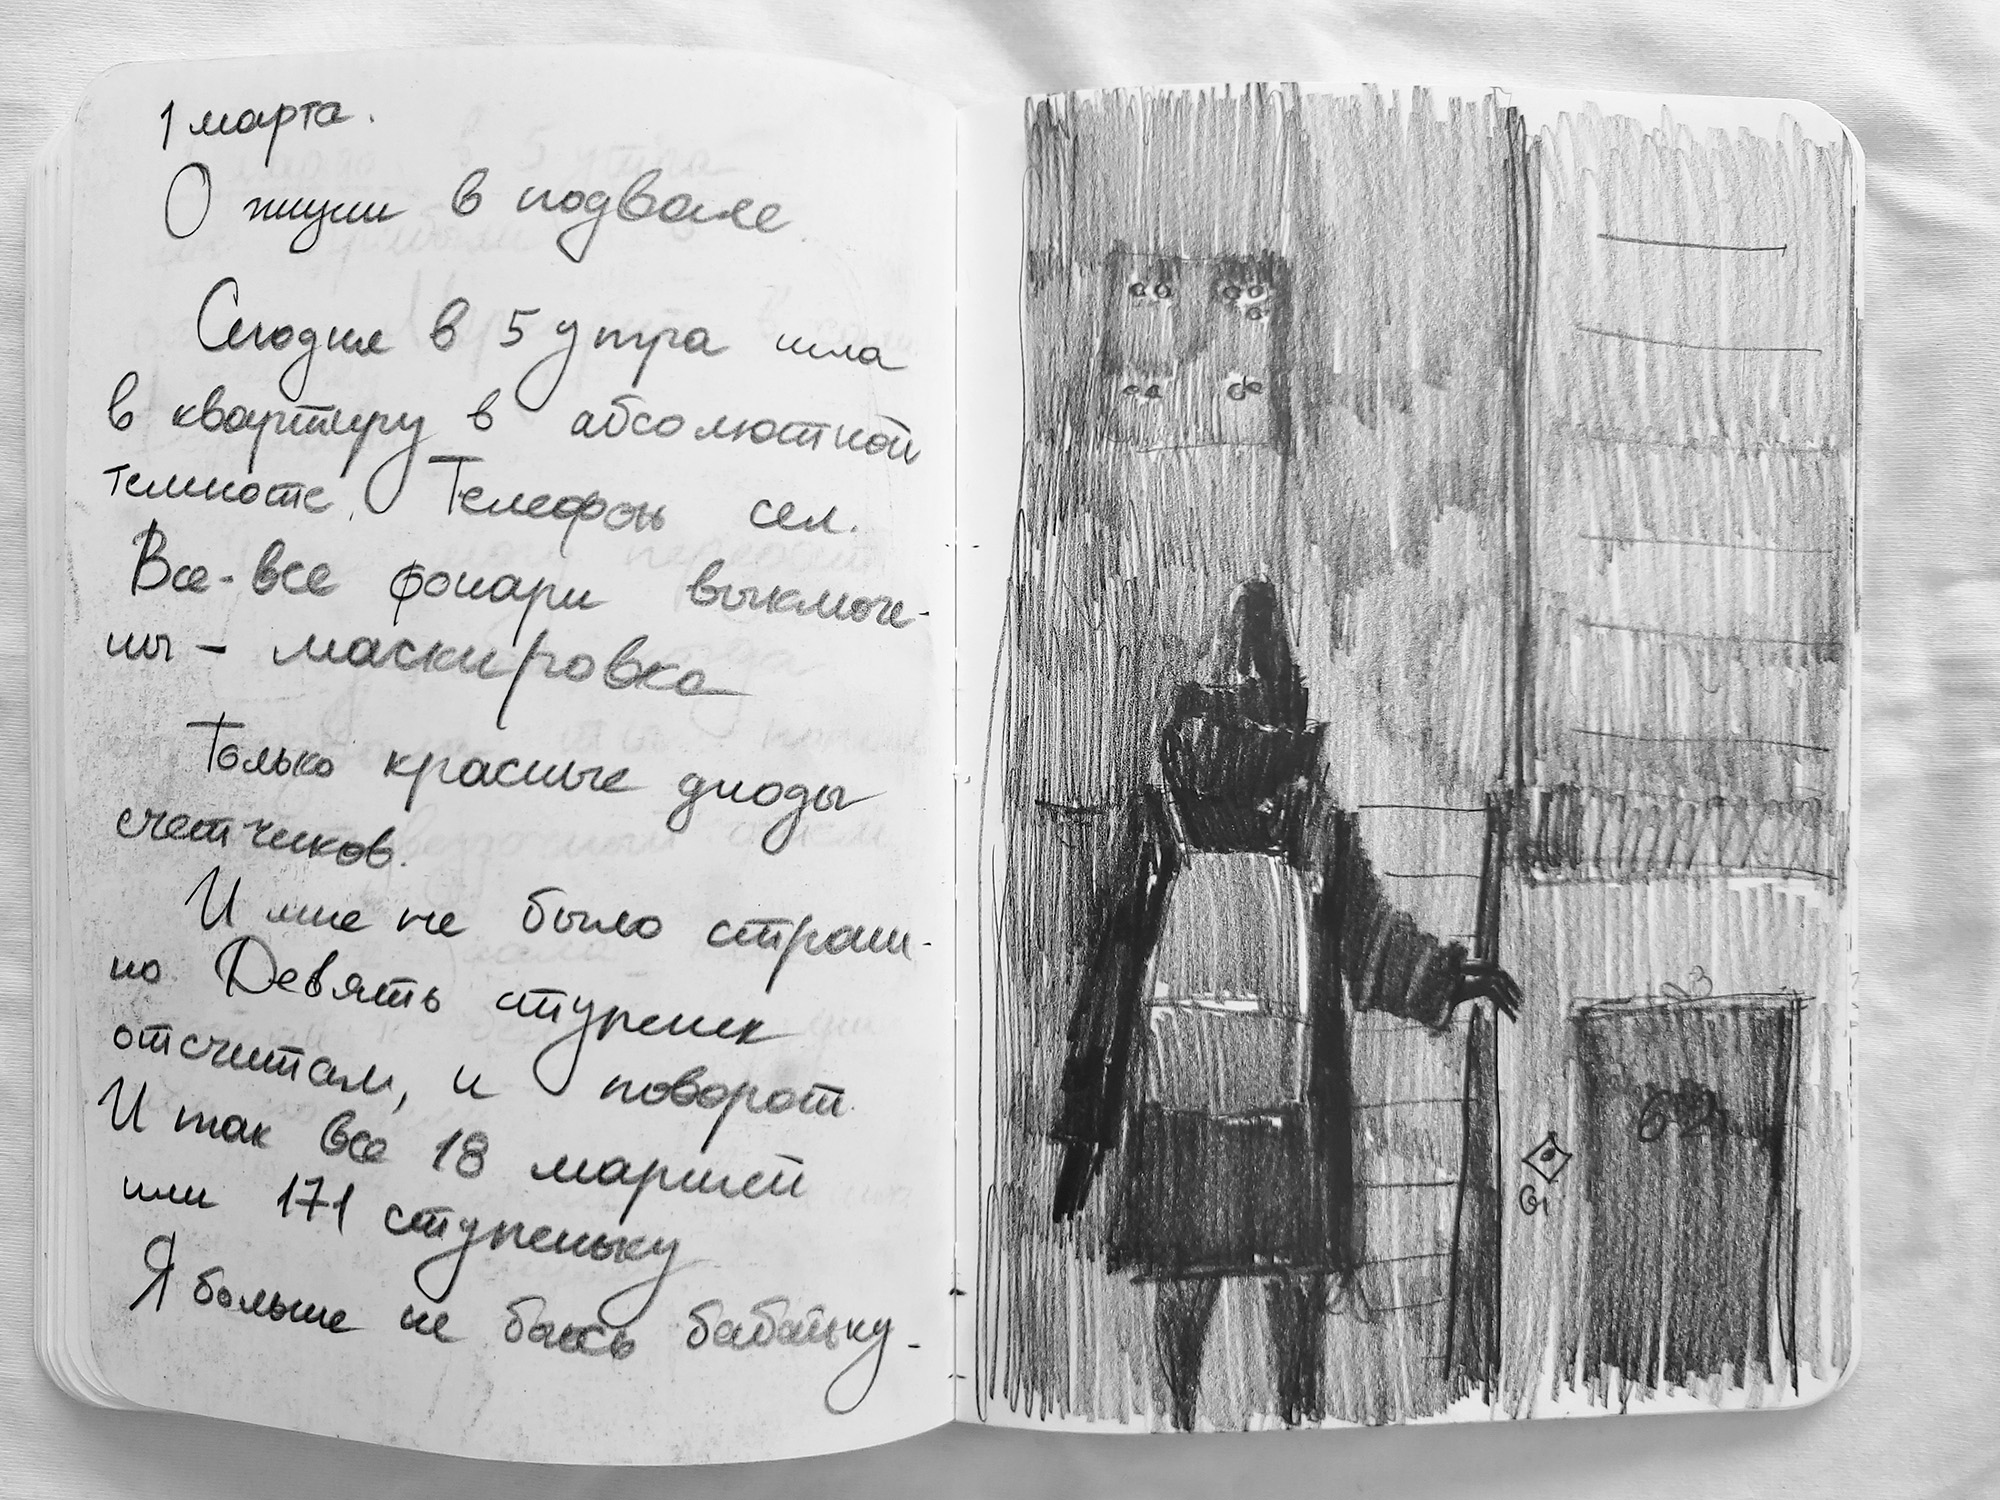 1 марта.
О жизни в подвале.
Сегодня в 5 утра шла
в квартиру в абсолютной
темноте. Телефон сел.
Все-все фонари выключе-
ны – маскировка
Только красные диоды
счетчиков.
И мне не было страш-
но. Девять ступенек
отсчитал, и поворот.
И так все 18 маршей
или 171 ступеньку
Я больше не боюсь бабайку.